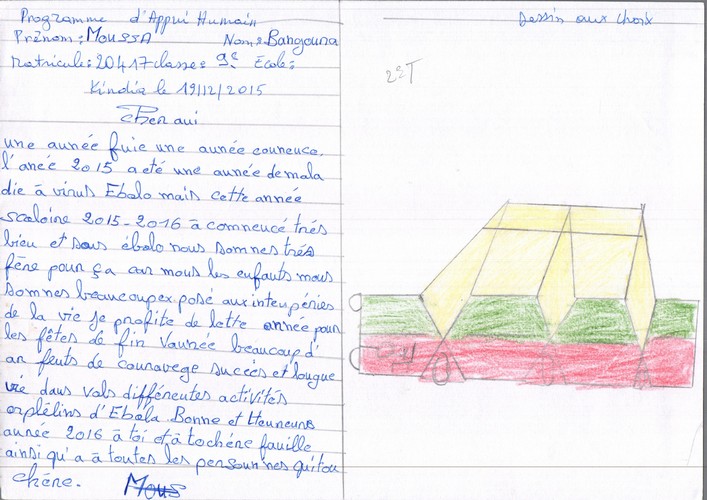 Programme d'Appui Humain
Prénom: MOUSSA Nom: Bangoura
Matricule: 20417 classe: 9e École:
Kindia le 19/12/2015
Cher ami
une année fuie une année counence.
l'anée 2015 a été une année de mala
die à virus Ebolo mais cette année
scoloire 2015-2016 à commencé trés
bien et sous ébolo nous somnes trés
fêne pour ça car mous les enfauts mous
somnes beaucoup ex posé aux inteupéries
de la vie je profite de lette année pour
les fêtes de fin l'aunée beaucoup d'
an feuts de couravege succés et lougue
vie daus vols différentes activités
orplélins d'Ebola Bonne et Heuneure
année 2016 à toi et à to chére fauille
ainsi qu'a à toutes les persounnes qui tou
chére.
Mous
Dessin aux choix
22T
O B A